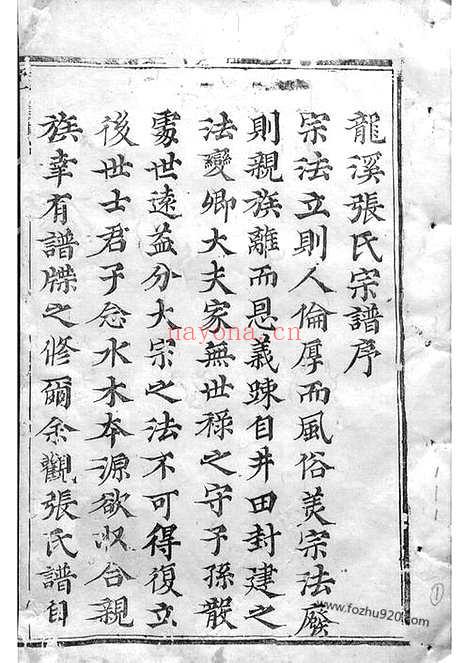 龍溪張氏宗譜序
宗法立則人倫厚而風俗美宗法廢
則親族離而恩義踈自井田封建之
法變卿大夫家無世祿之守子孫散
處世遠益分大宗之法不可得復立
後世士君子念水木本源欲収合親
族幸有譜牒之修爾余觀張氏譜自
nayona.cn
www.fozhu920.com
1